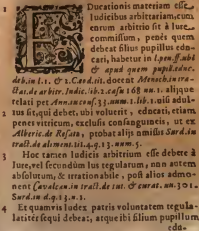 1 EDucationis materiam esse
Iudicibus arbitrariam, cum
eorum arbitrio sit à lure
commissum, penès quem
debeat filius pupillus edu-
cari, habetur in l. pen. ff. ubi
& apud quem pupil. educ.
deb. in l. 1. & 2. Cod. eit. docet Menoch. in tra-
ctat. de arbitr. Iudic. lib. 2. casu 168 nu. 1. aliique
2 telati per Ann. conf. 33. num. 1. lib. 1. nisi adul-
tus sit, qui debet, ubi voluerit, educari, etiam
penes vitricum, exclusis consanguineis, ut ex
Alberic. de Rosate, probat alijs omissis Surd. in
tract. de aliment. tit. 4. q. 13. num. 5.
3 Hoc tamen Iudicis arbitrium esse debere à
Iure, vel secundùm Ius regulatum, non autem
absolutum, & irrationabile, post alios admo-
nent Cavalcan. in tract. de tut. & curat. nu. 301.
Surd. in d. q. 13. n. 1.
4 Et quamvis Iudex patris voluntatem regula-
lariter sequi debeat, atque ibi filium pupillum
edu-